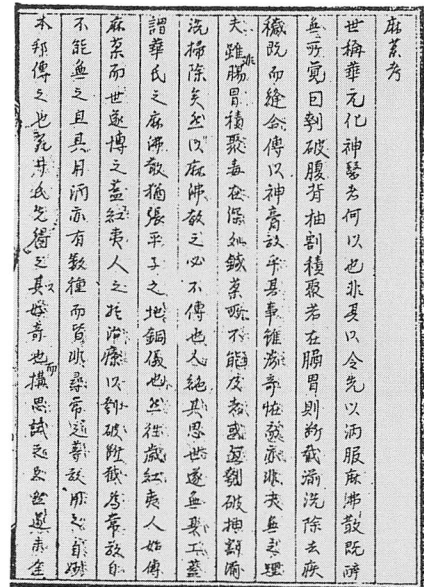 麻薬考
世稱華元化神醫者何以也非其以令先以酒服麻沸散既醉
無所覺因刳破腹背抽割積聚若在腸胃則斷截湔洗除去疾
穢既而縫合傅以神膏故乎其事雖頗奇怪 亦非夫無其理
夫雖非腸胃積聚毒在深処鍼薬所不能及者或 刳破抽割湔
洗掃除矣然以麻沸散之必不傳也人絕其思世遂無其工蓋
謂華氏之麻沸散猶張平子之地銅儀也然往歲紅夷人始傳
麻薬而世遂博之蓋紅夷人之於治療以刳破斷截為常故自
不能無之且其用酒亦有数種而皆非尋常 故用之自
本邦傳之也 井氏先得之其以好奇也而搆思試之